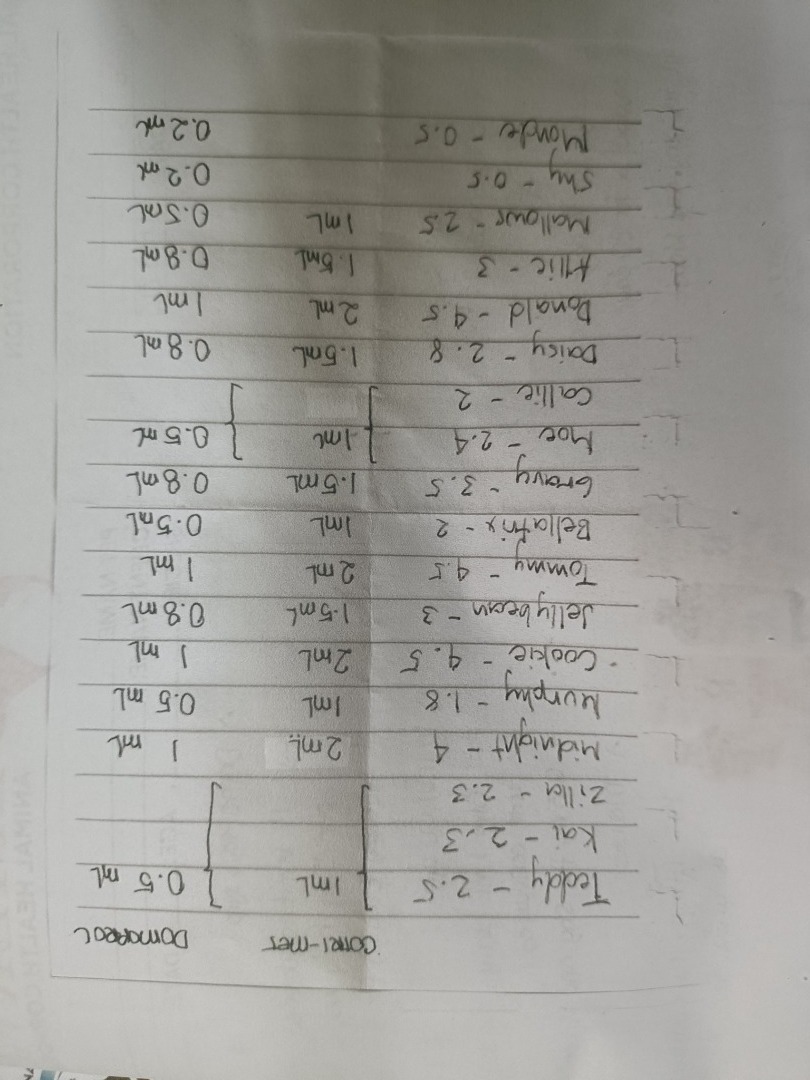 COTRI-MET DOMOPROL
Teddy - 2.5 1mL 0.5 mL
Kai - 2.3
Zilla - 2.3
Midnight - 4 2mL 1 mL
Murphy - 1.8 1mL 0.5 mL
Cookie - 4.5 2mL 1 mL
Jellybean - 3 1.5mL 0.8mL
Tommy - 4.5 2mL 1mL
Bellatrix - 2 1mL 0.5mL
Gravy - 3.5 1.5mL 0.8mL
Moe - 2.4 1mL 0.5mL
Callie - 2
Daisy - 2.8 1.5mL 0.8mL
Donald - 4.5 2mL 1mL
Allie - 3 1.5mL 0.8mL
Mallows - 2.5 1mL 0.5mL
Shy - 0.5 0.2mL
Monde - 0.5 0.2mL
ANIMAL HEALTH